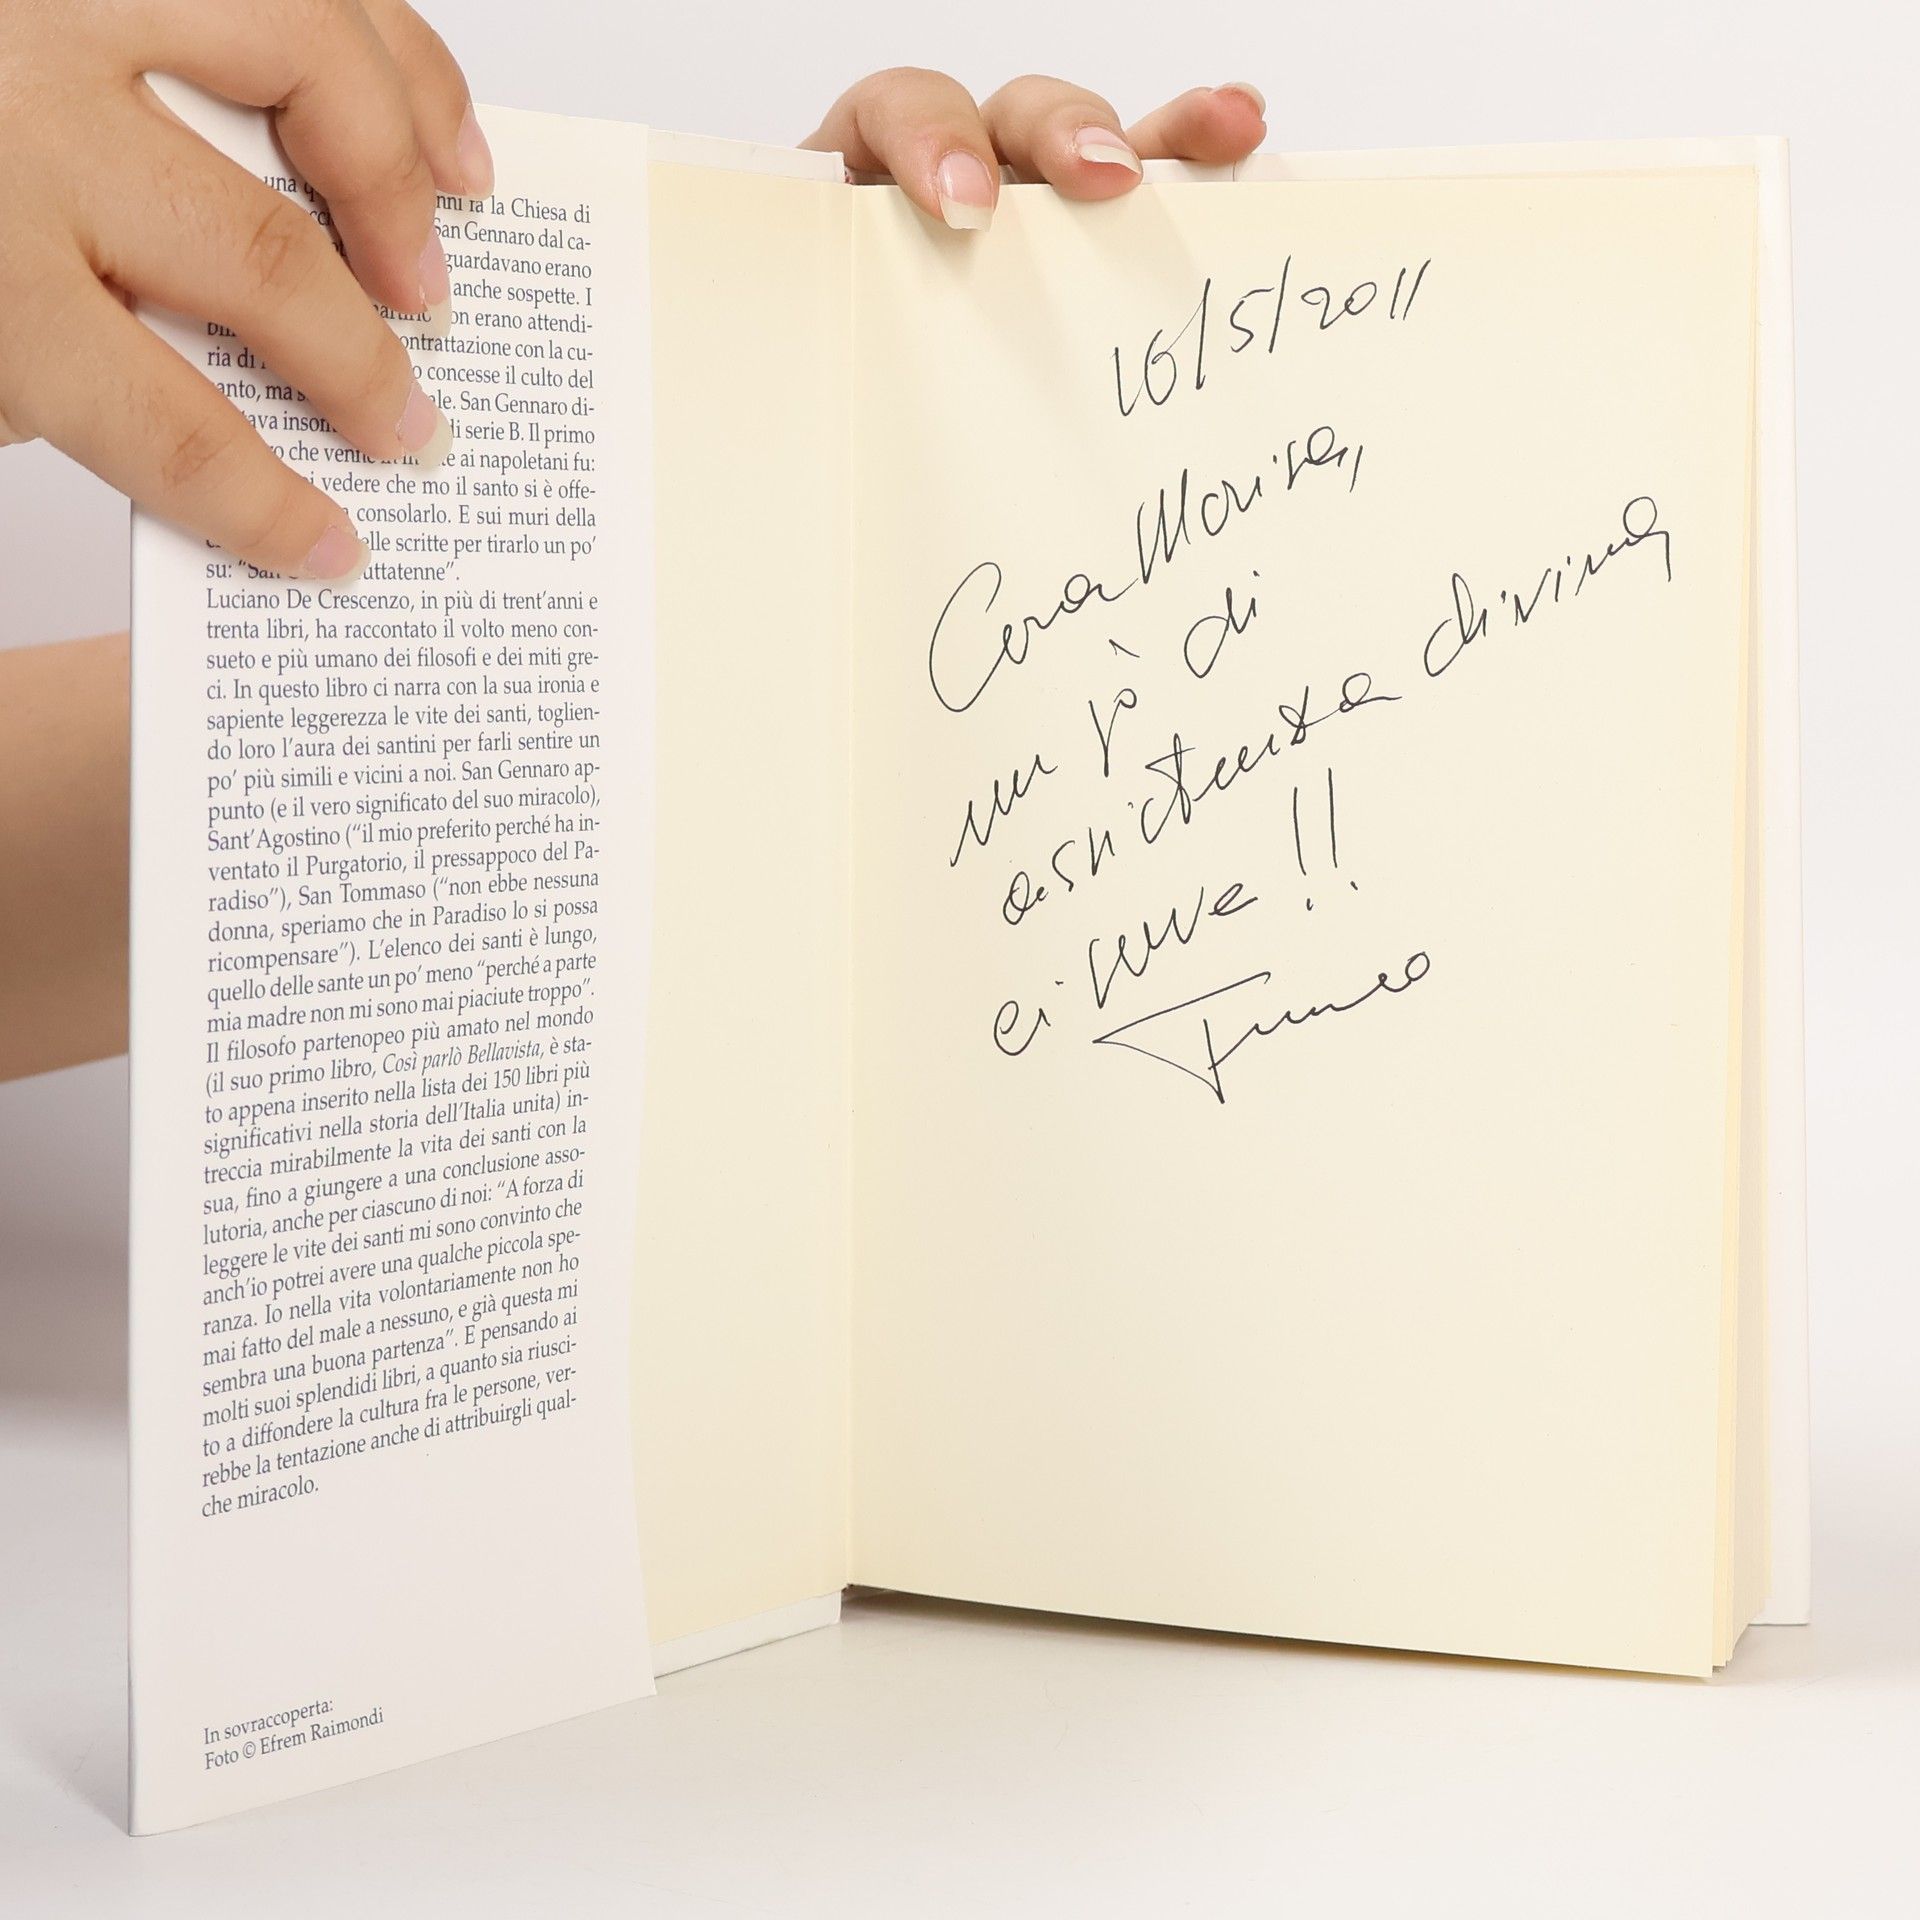 una
nni fa la Chiesa di
San Gennaro dal ca-
guardavano erano
anche sospette. I
on erano attendi-
ria di ontrattazione con la cu-
o concesse il culto del
anto, ma s ale. San Gennaro di-
tava inson di serie B. Il primo
o che venne in te ai napoletani fu:
i vedere che mo il santo si è offe-
consolarlo. E sui muri della
elle scritte per tirarlo un po'
su: "San uttatenne".
Luciano De Crescenzo, in più di trent'anni e
trenta libri, ha raccontato il volto meno con-
sueto e più umano dei filosofi e dei miti gre-
ci. In questo libro ci narra con la sua ironia e
sapiente leggerezza le vite dei santi, toglien-
do loro l'aura dei santini per farli sentire un
po' più simili e vicini a noi. San Gennaro ap-
punto (e il vero significato del suo miracolo),
Sant'Agostino ("il mio preferito perché ha in-
ventato il Purgatorio, il pressappoco del Pa-
radiso"), San Tommaso ("non ebbe nessuna
donna, speriamo che in Paradiso lo si possa
ricompensare"). L'elenco dei santi è lungo,
quello delle sante un po' meno "perché a parte
mia madre non mi sono mai piaciute troppo".
Il filosofo partenopeo più amato nel mondo
(il suo primo libro, Così parlò Bellavista, è sta-
to appena inserito nella lista dei 150 libri più
significativi nella storia dell'Italia unita) in-
treccia mirabilmente la vita dei santi con la
sua, fino a giungere a una conclusione asso-
lutoria, anche per ciascuno di noi: "A forza di
leggere le vite dei santi mi sono convinto che
anch'io potrei avere una qualche piccola spe-
ranza. Io nella vita volontariamente non ho
mai fatto del male a nessuno, e già questa mi
sembra una buona partenza". E pensando ai
molti suoi splendidi libri, a quanto sia riusci-
to a diffondere la cultura fra le persone, ver-
rebbe la tentazione anche di attribuirgli qual-
che miracolo.
In sovraccoperta:
Foto © Efrem Raimondi
16/5/2011
Cara Marisa,
un pò di
assistenza divina
ci serve!!